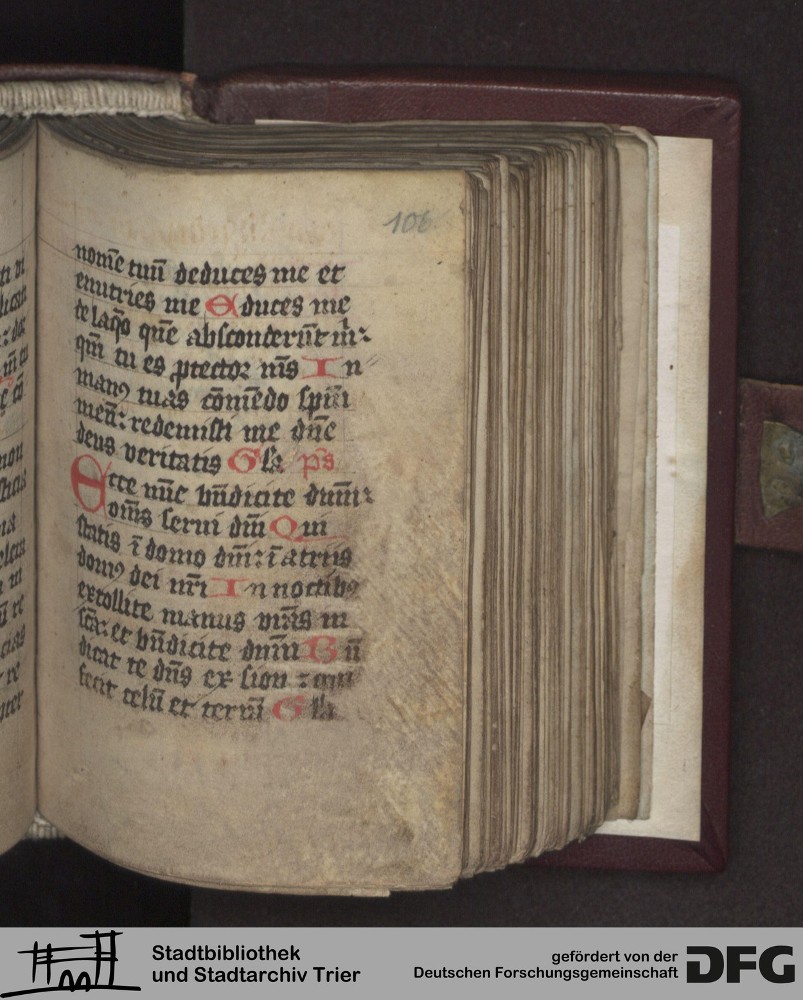 106
nom̄e tuū deduces me et
enutries me Educes me
de laq̄o quē absconderūt m̄:
qm̄ tu es ꝓtector m̄s In
manꝰ tuas cōmēdo spm̄
meū: redemisti me dn̄e
deus veritatis Gla ps
Ecce nūc bn̄dicite dnm̄:
om̄s serui dn̄i Qui
statis ī domo dn̄i: ī atriis
domꝰ dei nr̄i In noctibꝰ
extollite manus vr̄as in
sc̄a: et bn̄dicite dnm̄ Bn̄
dicat te dn̄s ex sion: qui
fecit celū et terrā Gla
Stadtbibliothek
und Stadtarchiv Trier
gefördert von der
Deutschen Forschungsgemeinschaft
DFG